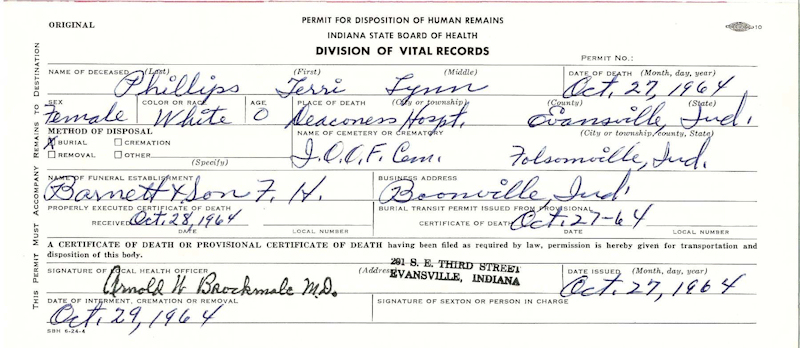 ORIGINAL
PERMIT FOR DISPOSITION OF HUMAN REMAINS
INDIANA STATE BOARD OF HEALTH
DIVISION OF VITAL RECORDS
10
PERMIT NO.:
THIS PERMIT MUST ACCOMPANY REMAINS TO DESTINATION
NAME OF DECEASED (Last) (First) (Middle) DATE OF DEATH (Month, day, year)
Phillips Terri Lynn Oct. 27, 1964
SEX COLOR OR RACE AGE PLACE OF DEATH (City or township) (County) (State)
Female White 0 Deaconess Hospt. Evansville, Ind.
METHOD OF DISPOSAL NAME OF CEMETERY OR CREMATORY (City or township, county, State)
X BURIAL CREMATION
REMOVAL OTHER I.O.O.F. Cem. Folsomville, Ind.
(Specify)
NAME OF FUNERAL ESTABLISHMENT BUSINESS ADDRESS
Barnett & Son F. H. Boonville, Ind.
PROPERLY EXECUTED CERTIFICATE OF DEATH BURIAL TRANSIT PERMIT ISSUED FROM PROVISIONAL
RECEIVED Oct. 28, 1964 CERTIFICATE OF DEATH Oct. 27-64
DATE LOCAL NUMBER DATE LOCAL NUMBER
A CERTIFICATE OF DEATH OR PROVISIONAL CERTIFICATE OF DEATH having been filed as required by law, permission is hereby given for transportation and
disposition of this body.
SIGNATURE OF LOCAL HEALTH OFFICER (Address) DATE ISSUED (Month, day, year)
Arnold W Brockmole M.D. 201 S. E. THIRD STREET
EVANSVILLE, INDIANA Oct. 27, 1964
DATE OF INTERMENT, CREMATION OR REMOVAL SIGNATURE OF SEXTON OR PERSON IN CHARGE
Oct. 29, 1964
SBH 6-24-4